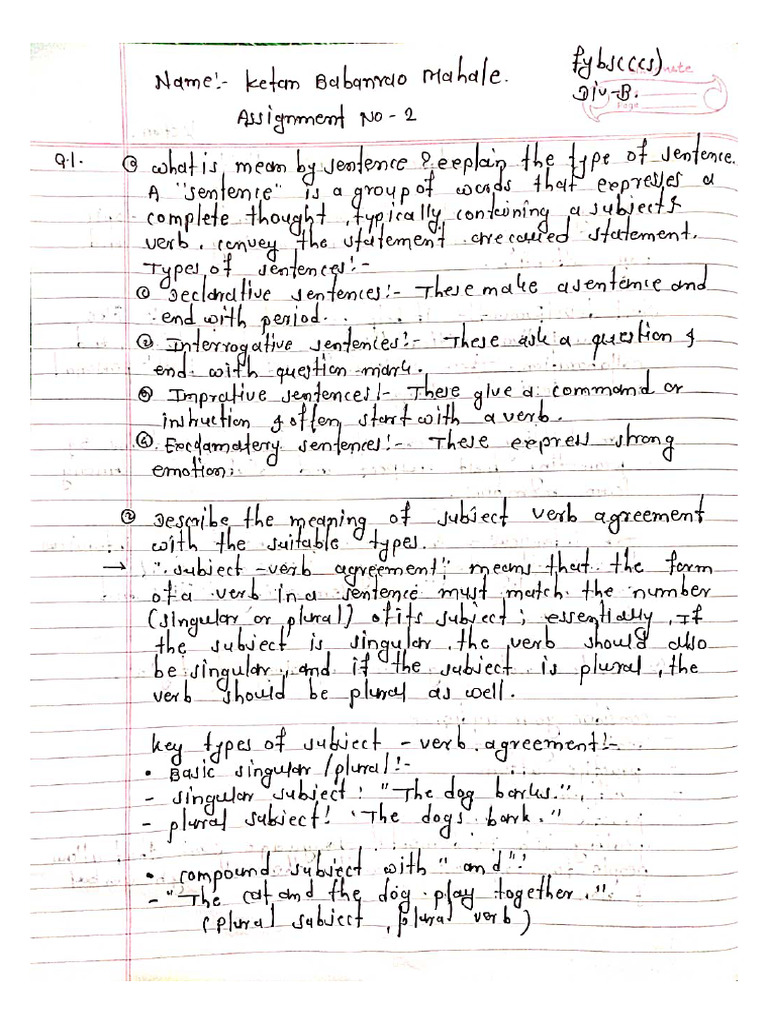 Fybsc(cs)
Name:- Ketan Babanrao Mahale.
Div-B.
Page
Assignment No - 2
Q.1. ① What is mean by sentence ? explain the type of sentence.
A "sentence" is a group of words that expresses a
complete thought, typically containing a subject &
verb. convey the statement are called statement.
Types of sentences:-
① Declarative sentences:- These make a sentence and
end with period.
② Interrogative sentences:- These ask a question &
end with question mark.
③ Imprative sentences:- These give a command or
instruction & often start with a verb.
④ Exclamatery sentences:- These express strong
emotion.
② Describe the meaning of subject verb agreement
with the suitable types.
→ "subject -verb agreement" means that the form
of a verb in a sentence must match the number
(singular or plural) of its subject; essentially, if
the subject is singular, the verb should also
be singular, and if the subject is plural, the
verb should be plural as well.
key types of subject - verb agreement:-
• Basic singular /plural:-
- singular subject: "The dog barks."
- plural subject: "The dogs bark."
• compound subject with "and":
- "The cat and the dog play together."
(plural subject, plural verb)